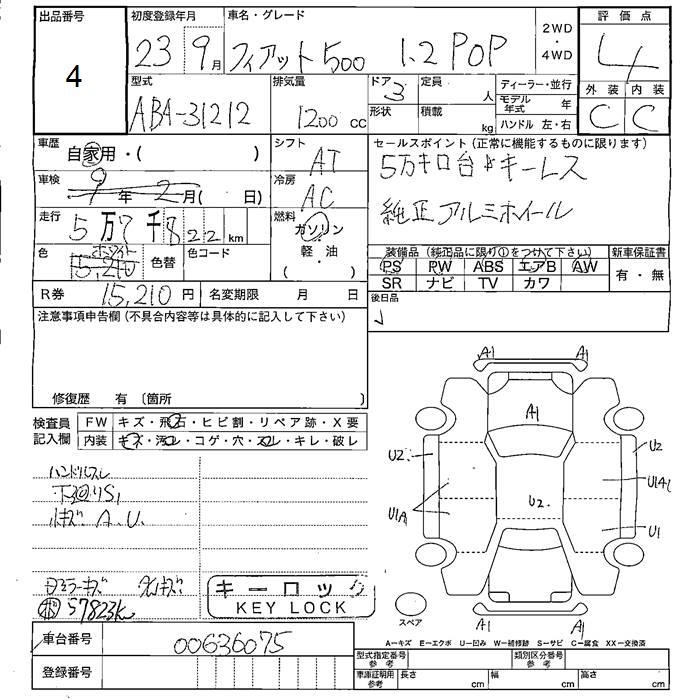 出品番号 初度登録年月 車名・グレード 2WD・4WD 評価点
4 23 9月 フィアット500 1.2 POP 4
型式 排気量 ドア 3 定員 人 ディーラー・並行 外装 内装
ABA-31212 1200 cc 形状 積載 kg モデル年式 年 C C
ハンドル 左・右
車歴 自家用・( ) シフト AT セールスポイント (正常に機能するものに限ります)
車検 9年 2月( 日) 冷房 AC 5万キロ台 キーレス
走行 5万7千822km 燃料 ガソリン 純正アルミホイール
軽・油
・( )
色 ホワイト 色替 色コード 装備品 (純正品に限り①をつけて下さい) 新車保証書
PS PW ABS エアB AW 有・無
R券 15,210円 名変期限 月 日 SR ナビ TV カワ
注意事項申告欄 (不具合内容等は具体的に記入して下さい) 後日品
修復歴 有 〔箇所
検査員記入欄 FW キズ・飛石・ヒビ割・リペア跡・X要
内装 キズ・汚コレ・コゲ・穴・スレ・キレ・破レ
ハンドルスレ
下廻りS1
小キズ A.U.
57823k
キーロック
KEY LOCK
A1 A1
A1
U2 U2
U1A U2 U1A1
U1
A1 A1
スペア
A−キズ E−エクボ U−凹み W−補修跡 S−サビ C−腐食 XX−交換済
車台番号 00636075
登録番号
型式指定番号 参考 類別区分番号 参考
車庫証明用 参考 長さ cm 幅 cm 高さ cm